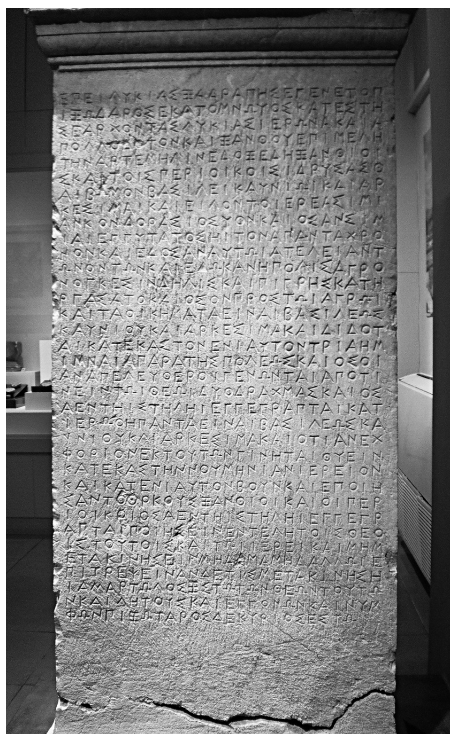 ΕΠΕΙΛΥΚΙΑΣΞΑΔΡΑΠΗΣΕΓΕΝΕΤΟΠ
ΙΞΩΔΑΡΟΣΕΚΑΤΟΜΝΩΥΟΣΚΑΤΕΣΤΗ
ΣΕΑΡΧΟΝΤΑΣΛΥΚΙΑΣΙΕΡΩΝΑΚΑΙΑ
ΠΟΛΛΟΔΟΤΟΝΚΑΙΞΑΝΘΟΥΕΠΙΜΕΛΗ
ΤΗΝΑΡΤΕΜΗΛΙΝΕΔΟΞΕΔΗΞΑΝΘΙΟΙ
ΣΚΑΙΤΟΙΣΠΕΡΙΟΙΚΟΙΣΙΔΡΥΣΑΣΘ
ΑΙΒΩΜΟΝΒΑΣΙΛΕΙΚΑΥΝΙΩΙΚΑΙΑΡ
ΚΕΣΙΜΑΙΚΑΙΕΙΛΟΝΤΟΙΕΡΕΑΣΙΜΙ
ΑΝΚΟΝΔΟΡΑΣΙΟΣΥΟΝΚΑΙΟΣΑΝΣΙΜ
ΙΑΙΕΓΓΥΤΑΤΟΣΗΙΤΟΝΑΠΑΝΤΑΧΡΟ
ΝΟΝΚΑΙΕΔΟΣΑΝΑΥΤΩΙΑΤΕΛΕΙΑΝΤ
ΩΝΟΝΤΩΝΚΑΙΕΔΩΚΑΝΗΠΟΛΙΣΑΓΡΟ
ΝΟΓΚΕΣΙΝΔΗΛΙΣΚΑΙΠΙΓΡΗΣΚΑΤΗ
ΡΓΑΣΑΤΟΚΑΙΟΣΟΝΠΡΟΣΤΩΙΑΓΡΩΙ
ΚΑΙΤΑΟΙΚΗΜΑΤΑΕΙΝΑΙΒΑΣΙΛΕΩΣ
ΚΑΥΝΙΟΥΚΑΙΑΡΚΕΣΙΜΑΚΑΙΔΙΔΟΤ
ΑΙΚΑΤΕΚΑΣΤΟΝΕΝΙΑΥΤΟΝΤΡΙΑΗΜ
ΙΜΝΑΙΑΠΑΡΑΤΗΣΠΟΛΕΩΣΚΑΙΟΣΟΙ
ΑΝΑΠΕΛΕΥΘΕΡΟΙΓΕΝΩΝΤΑΙΑΠΟΤΙ
ΝΕΙΝΤΩΙΘΕΩΙΔΥΟΔΡΑΧΜΑΣΚΑΙΟΣ
ΑΕΝΤΗΙΣΤΗΛΗΙΕΓΓΕΓΡΑΠΤΑΙΚΑΤ
ΙΕΡΩΘΗΠΑΝΤΑΕΙΝΑΙΒΑΣΙΛΕΩΣΚΑ
ΥΝΙΟΥΚΑΙΑΡΚΕΣΙΜΑΚΑΙΟΤΙΑΝΕΧ
ΦΟΡΙΟΝΕΚΤΟΥΤΩΝΓΙΝΗΤΑΙΘΥΕΙΝ
ΚΑΤΕΚΑΣΤΗΝΝΟΥΜΗΝΙΑΝΙΕΡΕΙΟΝ
ΚΑΙΚΑΤΕΝΙΑΥΤΟΝΒΟΥΝΚΑΙΕΠΟΙΗ
ΣΑΝΤΟΟΡΚΟΥΣΞΑΝΘΙΟΙΚΑΙΟΙΠΕΡ
ΙΟΙΚΟΙΟΣΑΕΝΤΗΙΣΤΗΛΗΙΕΓΓΕΓΡ
ΑΠΤΑΙΠΟΙΗΣΕΙΝΕΝΤΕΛΗΤΟΙΣΘΕΟ
ΙΣΤΟΥΤΟΙΣΚΑΙΤΩΙΙΕΡΕΙΚΑΙΜΗΜ
ΕΤΑΚΙΝΗΣΕΙΝΜΗΔΑΜΑΜΗΔΑΛΛΩΙΕ
ΠΙΤΡΕΨΕΙΝΑΝΔΕΤΙΣΜΕΤΑΚΙΝΗΣΗ
ΙΑΜΑΡΤΩΛΟΣΕΣΤΩΤΩΝΘΕΩΝΤΟΥΤΩ
ΝΚΑΙΛΗΤΟΥΣΚΑΙΕΓΓΟΝΩΝΚΑΙΝΥΜ
ΦΩΝΠΙΞΩΤΑΡΟΣΔΕΚΥΡΙΟΣΕΣΤΩ